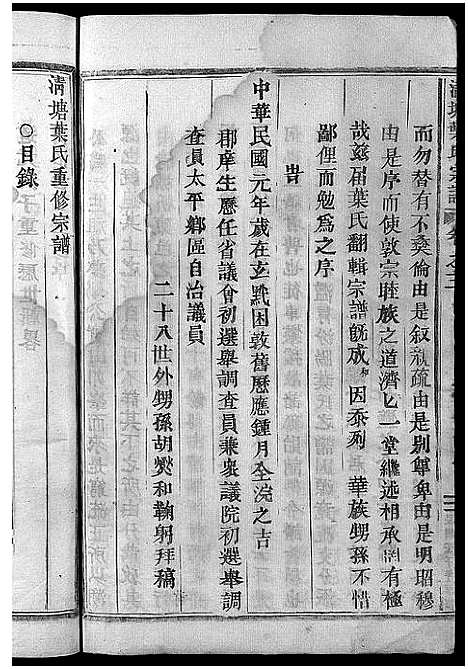 而勿替有不紊倫由是叙親疏由是別尊卑由是明昭穆
由是序而使敦宗睦族之道濟匕一堂繼述相承罔有極
哉玆届葉氏翻輯宗譜旣成 因忝列 華族甥孫不惜
鄙俚而勉爲之序
旹
中華民國元年歲在玄黓困敦舊歷應鍾月全浣之吉
郡庠生歷任省議會初選舉調查員兼衆議院初選舉調
查員太平鄉區自治議員
二十八世外甥孫胡爕和鞠躬拜稿
淸塘葉氏重修宗譜
○目錄